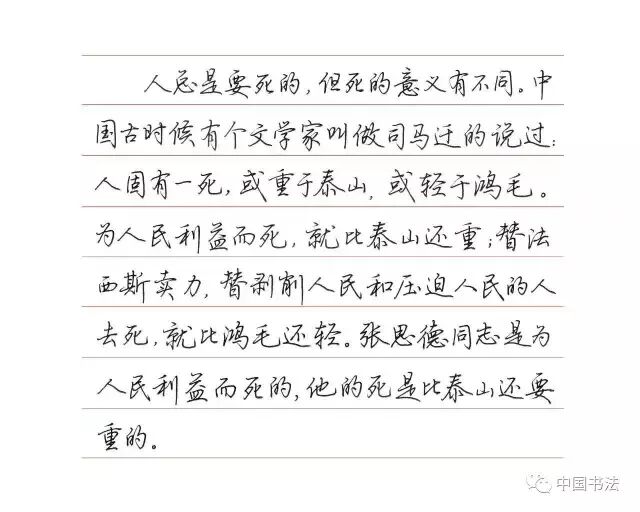 人总是要死的，但死的意义有不同。中
国古时候有个文学家叫做司马迁的说过：
人固有一死，或重于泰山，或轻于鸿毛。
为人民利益而死，就比泰山还重；替法
西斯卖力，替剥削人民和压迫人民的人
去死，就比鸿毛还轻。张思德同志是为
人民利益而死的，他的死是比泰山还要
重的。
中国书法